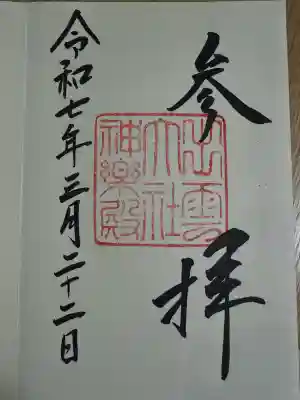 参拝
出雲
大社
神楽殿
令和七年三月二十二日